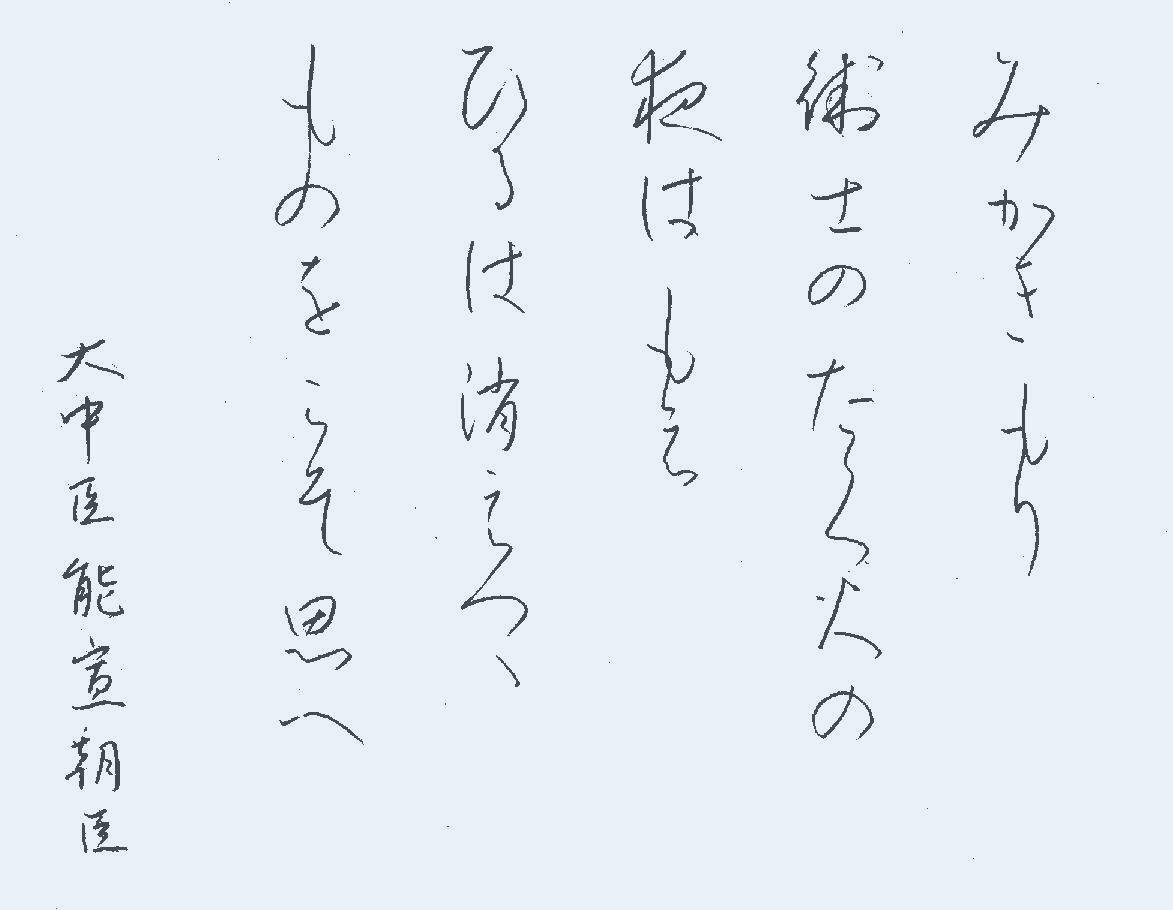 みかきもり
衛士のたく火の
夜はもえ
ひるは消えつゝ
ものをこそ思へ
大中臣能宣朝臣